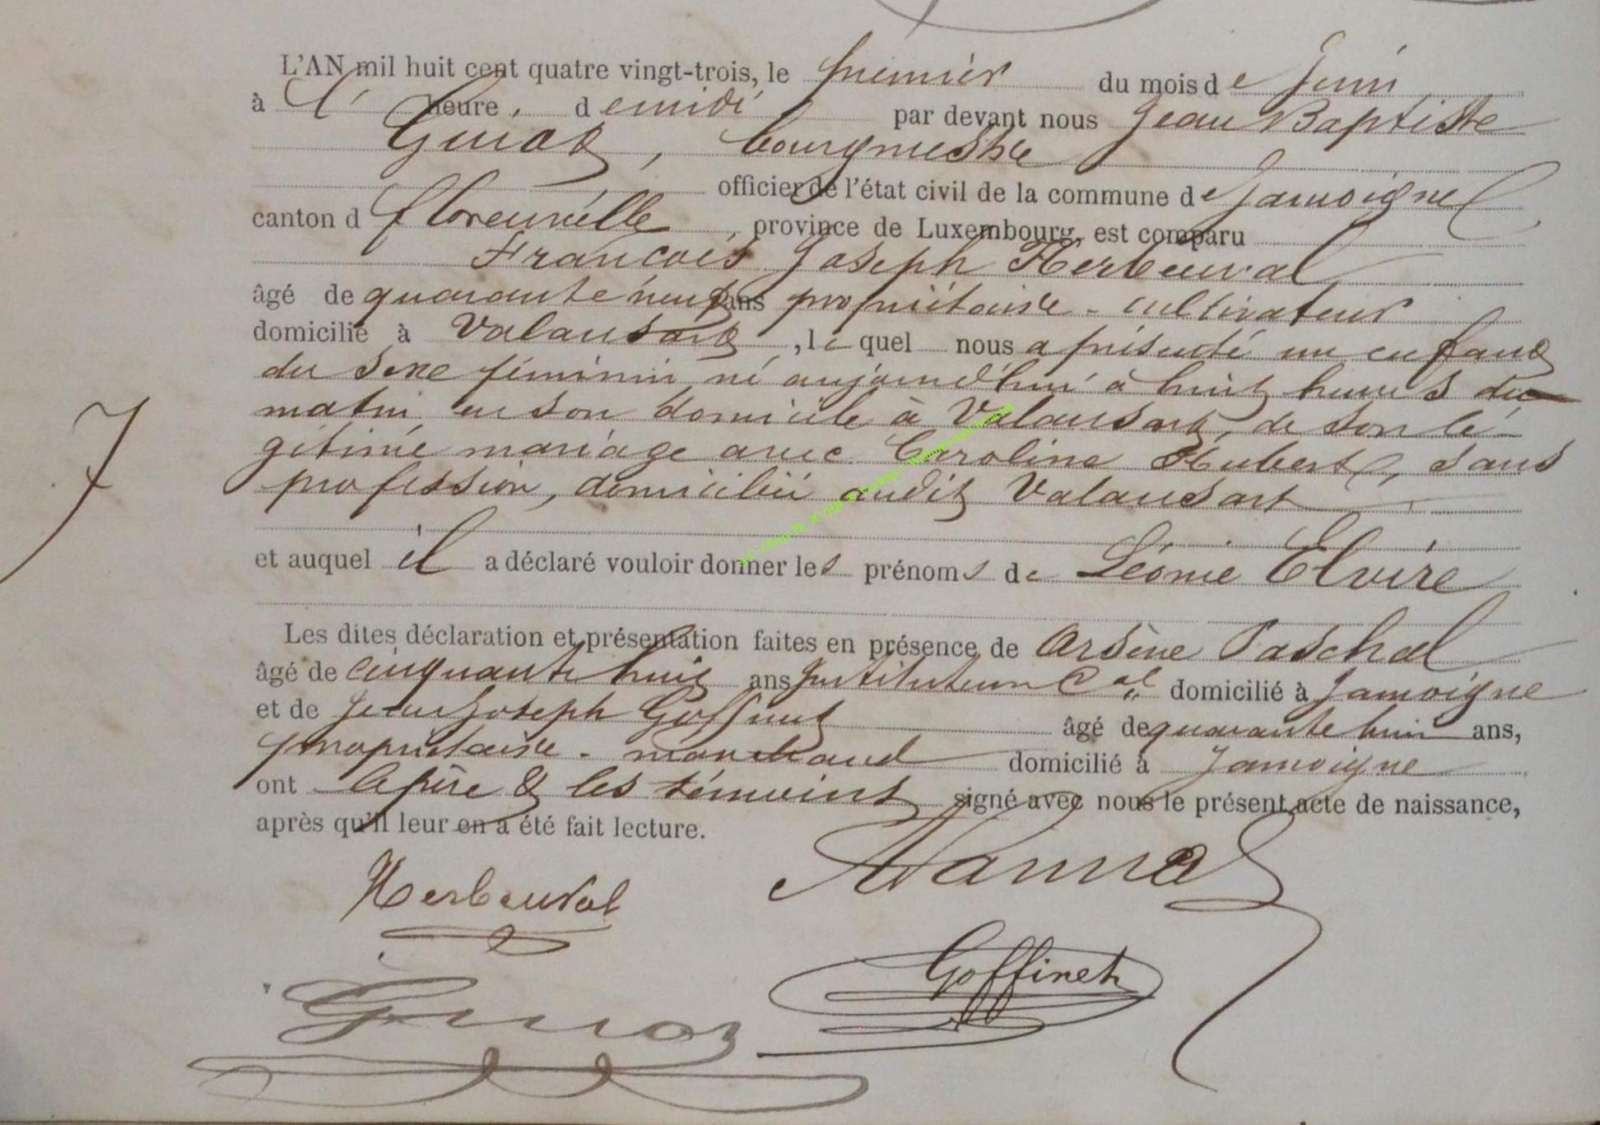 L'AN mil huit cent quatre vingt-trois, le premier du mois de Juin
à l' heure, demidi par devant nous Jean Baptiste
bourgmestre
officier de l'état civil de la commune de Jamoigne
canton d florenville, province de Luxembourg, est comparu
François Joseph Herbeuval
âgé de quarante neuf ans propriétaire - cultivateur
domicilié à Valansart, le quel nous a présenté un enfant
du sexe féminin né aujourd'hui à huit heures du
matin en son domicile à Valansart, de son lé-
gitime mariage avec Caroline Hubert, sans
profession, domiciliée audit Valansart
et auquel il a déclaré vouloir donner les prénoms de Léonie Elvire
Les dites déclaration et présentation faites en présence de Arsène Paschal
âgé de cinquante huit ans Instituteur Cal domicilié à Jamoigne
et de Jean Joseph Goffinet âgé de quarante huit ans,
propriétaire - marchand domicilié à Jamoigne
ont le père & les témoins signé avec nous le présent acte de naissance,
après qu'il leur en a été fait lecture.
Herbeuval
Goffinet
7